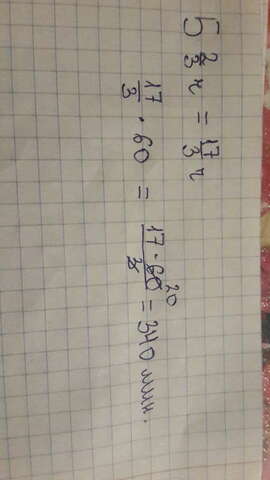 5 2/3 ч = 17/3 ч
17/3 · 60 = 17 · 60/3 20 = 340 мин.